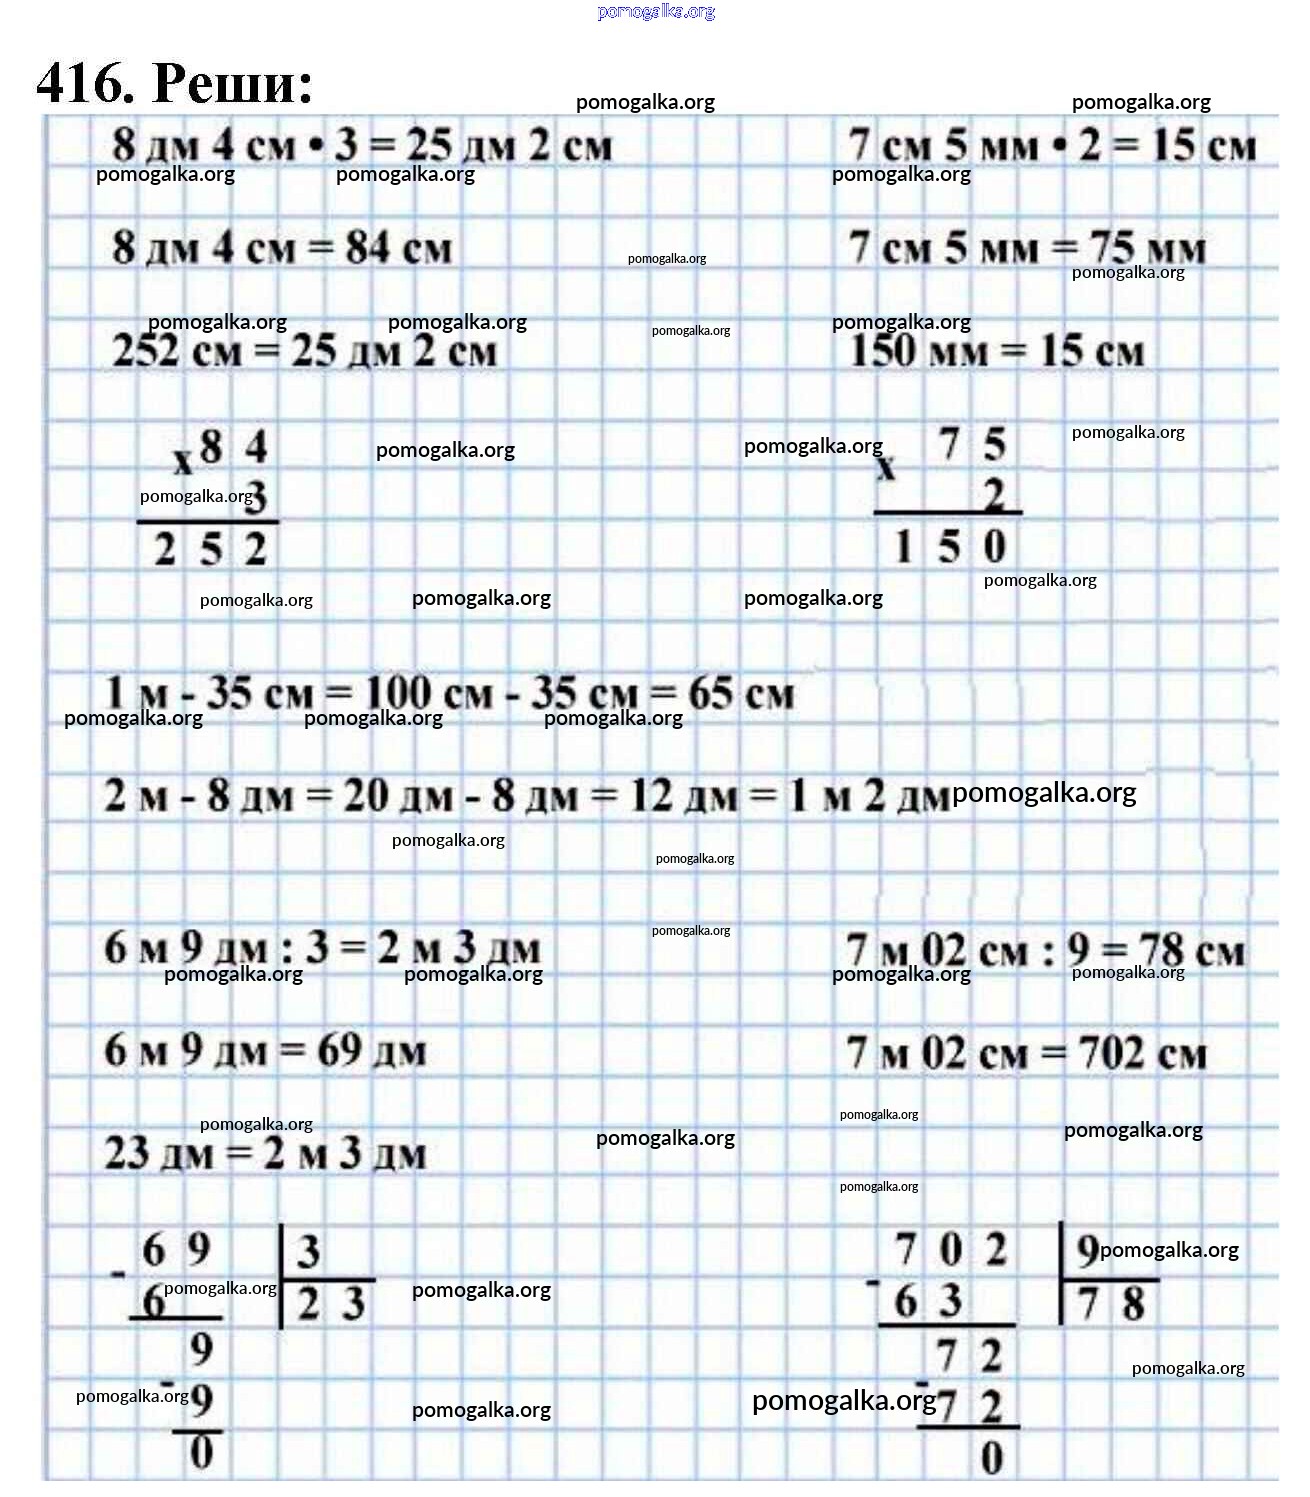 pomogalka.org
416. Реши:
pomogalka.org pomogalka.org
8 дм 4 см • 3 = 25 дм 2 см 7 см 5 мм • 2 = 15 см
pomogalka.org pomogalka.org pomogalka.org
8 дм 4 см = 84 см 7 см 5 мм = 75 мм
pomogalka.org pomogalka.org
pomogalka.org pomogalka.org pomogalka.org pomogalka.org
252 см = 25 дм 2 см 150 мм = 15 см
x 8 4 pomogalka.org pomogalka.org x 7 5 pomogalka.org
pomogalka.org 3 2
2 5 2 1 5 0
pomogalka.org pomogalka.org pomogalka.org pomogalka.org
1 м - 35 см = 100 см - 35 см = 65 см
pomogalka.org pomogalka.org pomogalka.org
2 м - 8 дм = 20 дм - 8 дм = 12 дм = 1 м 2 дм pomogalka.org
pomogalka.org pomogalka.org
pomogalka.org
6 м 9 дм : 3 = 2 м 3 дм 7 м 02 см : 9 = 78 см
pomogalka.org pomogalka.org pomogalka.org pomogalka.org
6 м 9 дм = 69 дм 7 м 02 см = 702 см
pomogalka.org pomogalka.org pomogalka.org pomogalka.org
23 дм = 2 м 3 дм
pomogalka.org
- 6 9 3 - 7 0 2 9 pomogalka.org
6 pomogalka.org 2 3 pomogalka.org 6 3 7 8
9 7 2 pomogalka.org
pomogalka.org - 9 pomogalka.org pomogalka.org - 7 2
0 0